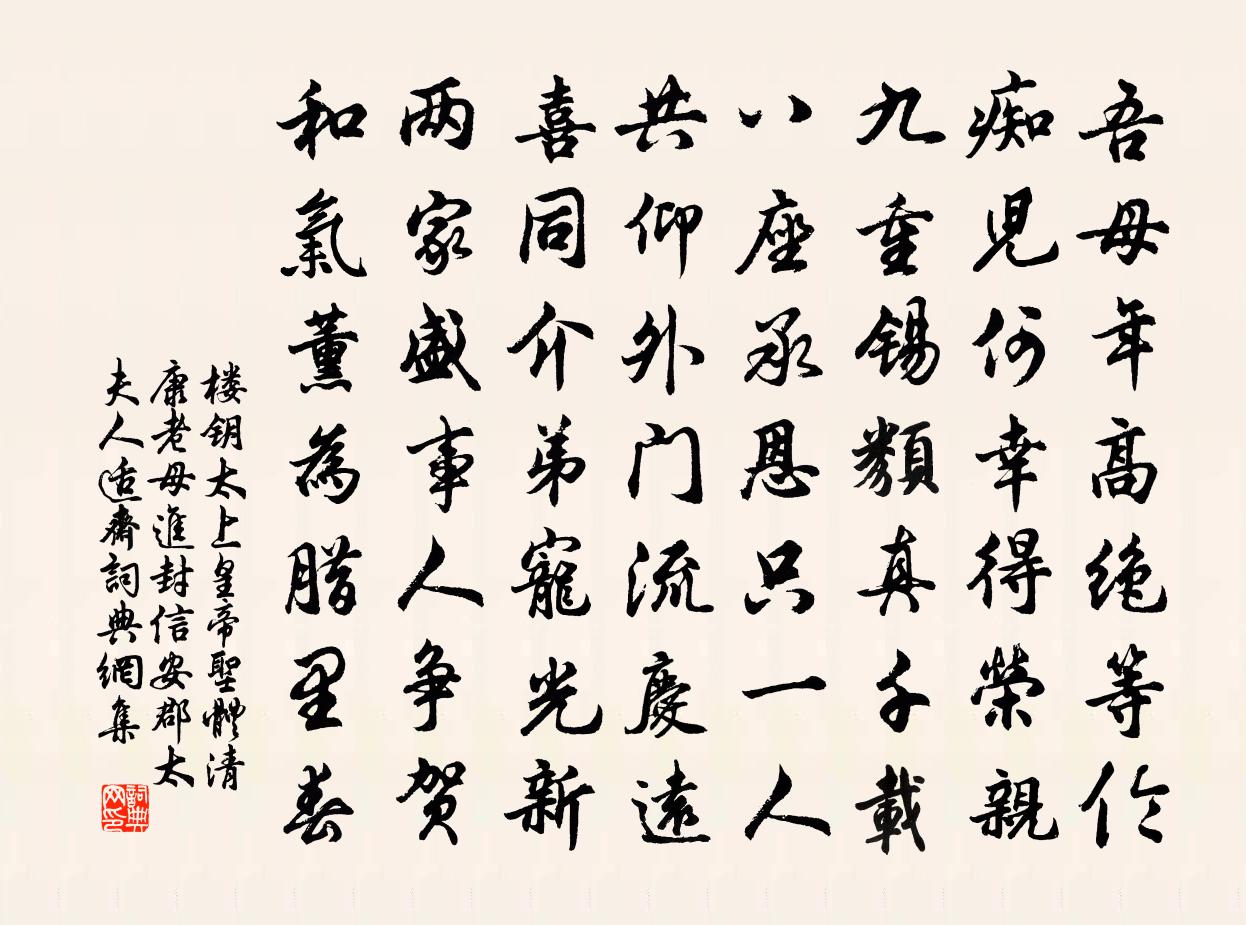 吾母年高绝等伦
痴児何幸得荣親
九重锡類真千載
八座承恩只一人
共仰外门流慶遠
喜同介弟寵光新
两家盛事人争贺
和氣薰為腊里春
楼钥太上皇帝聖體清
康老母進封信安郡太
夫人适齋詞典網集
詞典网印